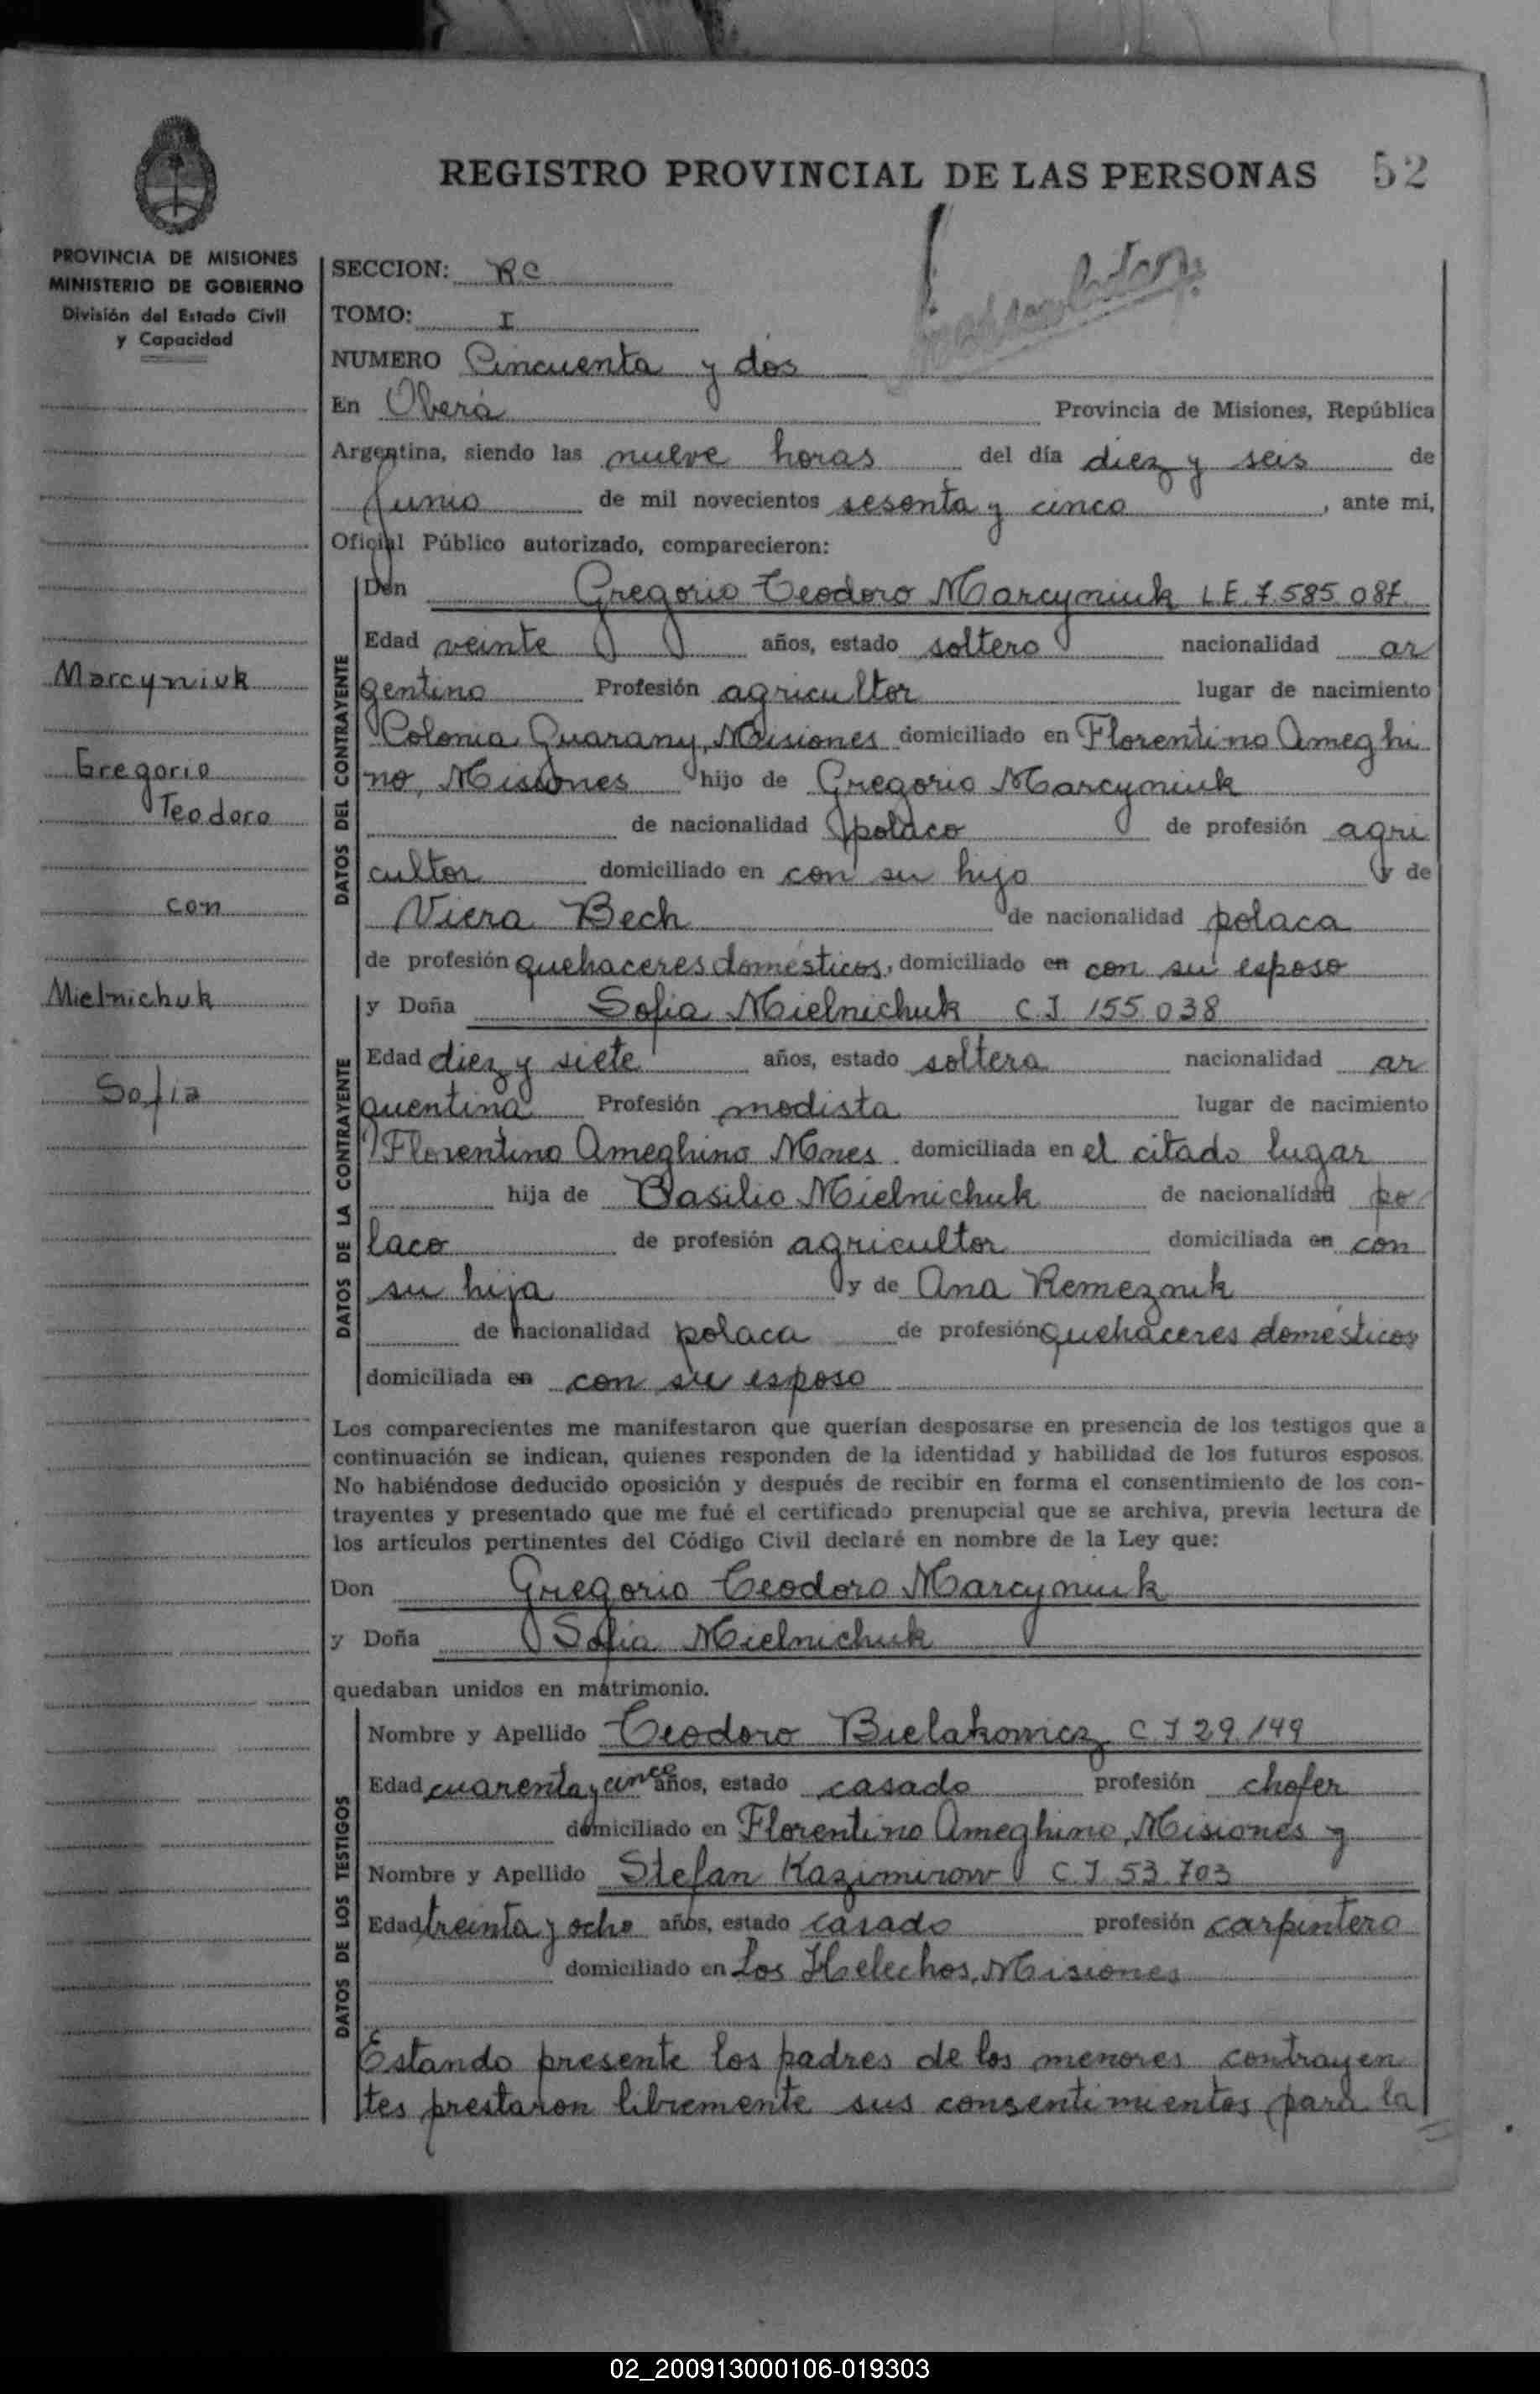 REGISTRO PROVINCIAL DE LAS PERSONAS 52
PROVINCIA DE MISIONES
MINISTERIO DE GOBIERNO
División del Estado Civil
y Capacidad
SECCION: RC
TOMO: I
NUMERO Cincuenta y dos
En Oberá Provincia de Misiones, República
Argentina, siendo las nueve horas del día diez y seis de
Junio de mil novecientos sesenta y cinco, ante mi,
Oficial Público autorizado, comparecieron:
Marcyniuk
Gregorio
Teodoro
con
Mielnichuk
Sofia
DATOS DEL CONTRAYENTE
Don Gregorio Teodoro Marcyniuk L E. 7.585.087
Edad veinte años, estado soltero nacionalidad ar
gentino Profesión agricultor lugar de nacimiento
Colonia Guarany, Misiones domiciliado en Florentino Ameghi
no, Misiones hijo de Gregorio Marcyniuk
de nacionalidad polaco de profesión agri
cultor domiciliado en con su hijo y de
Viera Bech de nacionalidad polaca
de profesión quehaceres domésticos, domiciliado en con su esposo
DATOS DE LA CONTRAYENTE
y Doña Sofia Mielnichuk C.I. 155.038
Edad diez y siete años, estado soltera nacionalidad ar
guentina Profesión modista lugar de nacimiento
Florentino Ameghino Mnes. domiciliada en el citado lugar
hija de Basilio Mielnichuk de nacionalidad po
laco de profesión agricultor domiciliada en con
su hija y de Ana Remeznuk
de nacionalidad polaca de profesión quehaceres domésticos
domiciliada en con su esposo
Los comparecientes me manifestaron que querían desposarse en presencia de los testigos que a
continuación se indican, quienes responden de la identidad y habilidad de los futuros esposos.
No habiéndose deducido oposición y después de recibir en forma el consentimiento de los con-
trayentes y presentado que me fué el certificado prenupcial que se archiva, previa lectura de
los artículos pertinentes del Código Civil declaré en nombre de la Ley que:
Don Gregorio Teodoro Marcyniuk
y Doña Sofia Mielnichuk
quedaban unidos en matrimonio.
DATOS DE LOS TESTIGOS
Nombre y Apellido Teodoro Bielakowicz C.I 29.149
Edad cuarenta y cinco años, estado casado profesión chofer
domiciliado en Florentino Ameghino, Misiones y
Nombre y Apellido Stefan Kazimirow C.I. 53.703
Edad treinta y ocho años, estado casado profesión carpintero
domiciliado en Los Helechos, Misiones
Estando presente los padres de los menores contrayen
tes prestaron libremente sus consentimientos para la
02_200913000106-019303